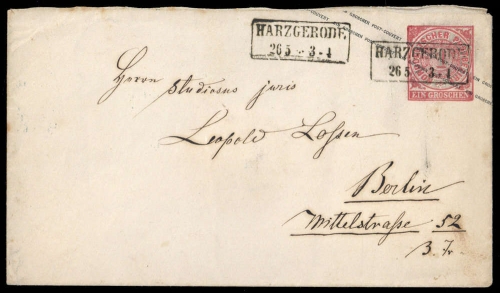 HARZGERODE
26 5 3-4
HARZGERODE
26 5 3-4
EIN GROSCHEN
Herrn
Studiosus juris
Leopold Lossen
Berlin
Mittelstraße 52
3. Tr.